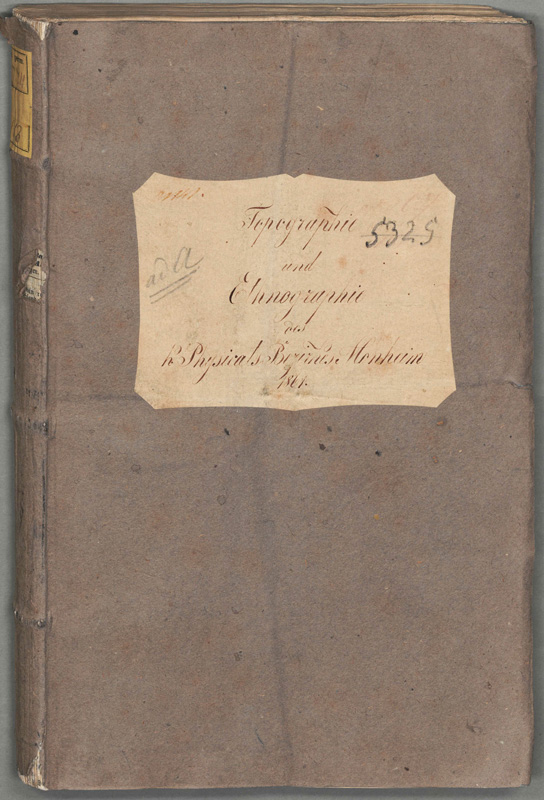 Topographie
5325
und
ad A
Ethnographie
des
k. Physicats-Bezirks Monheim
1861.